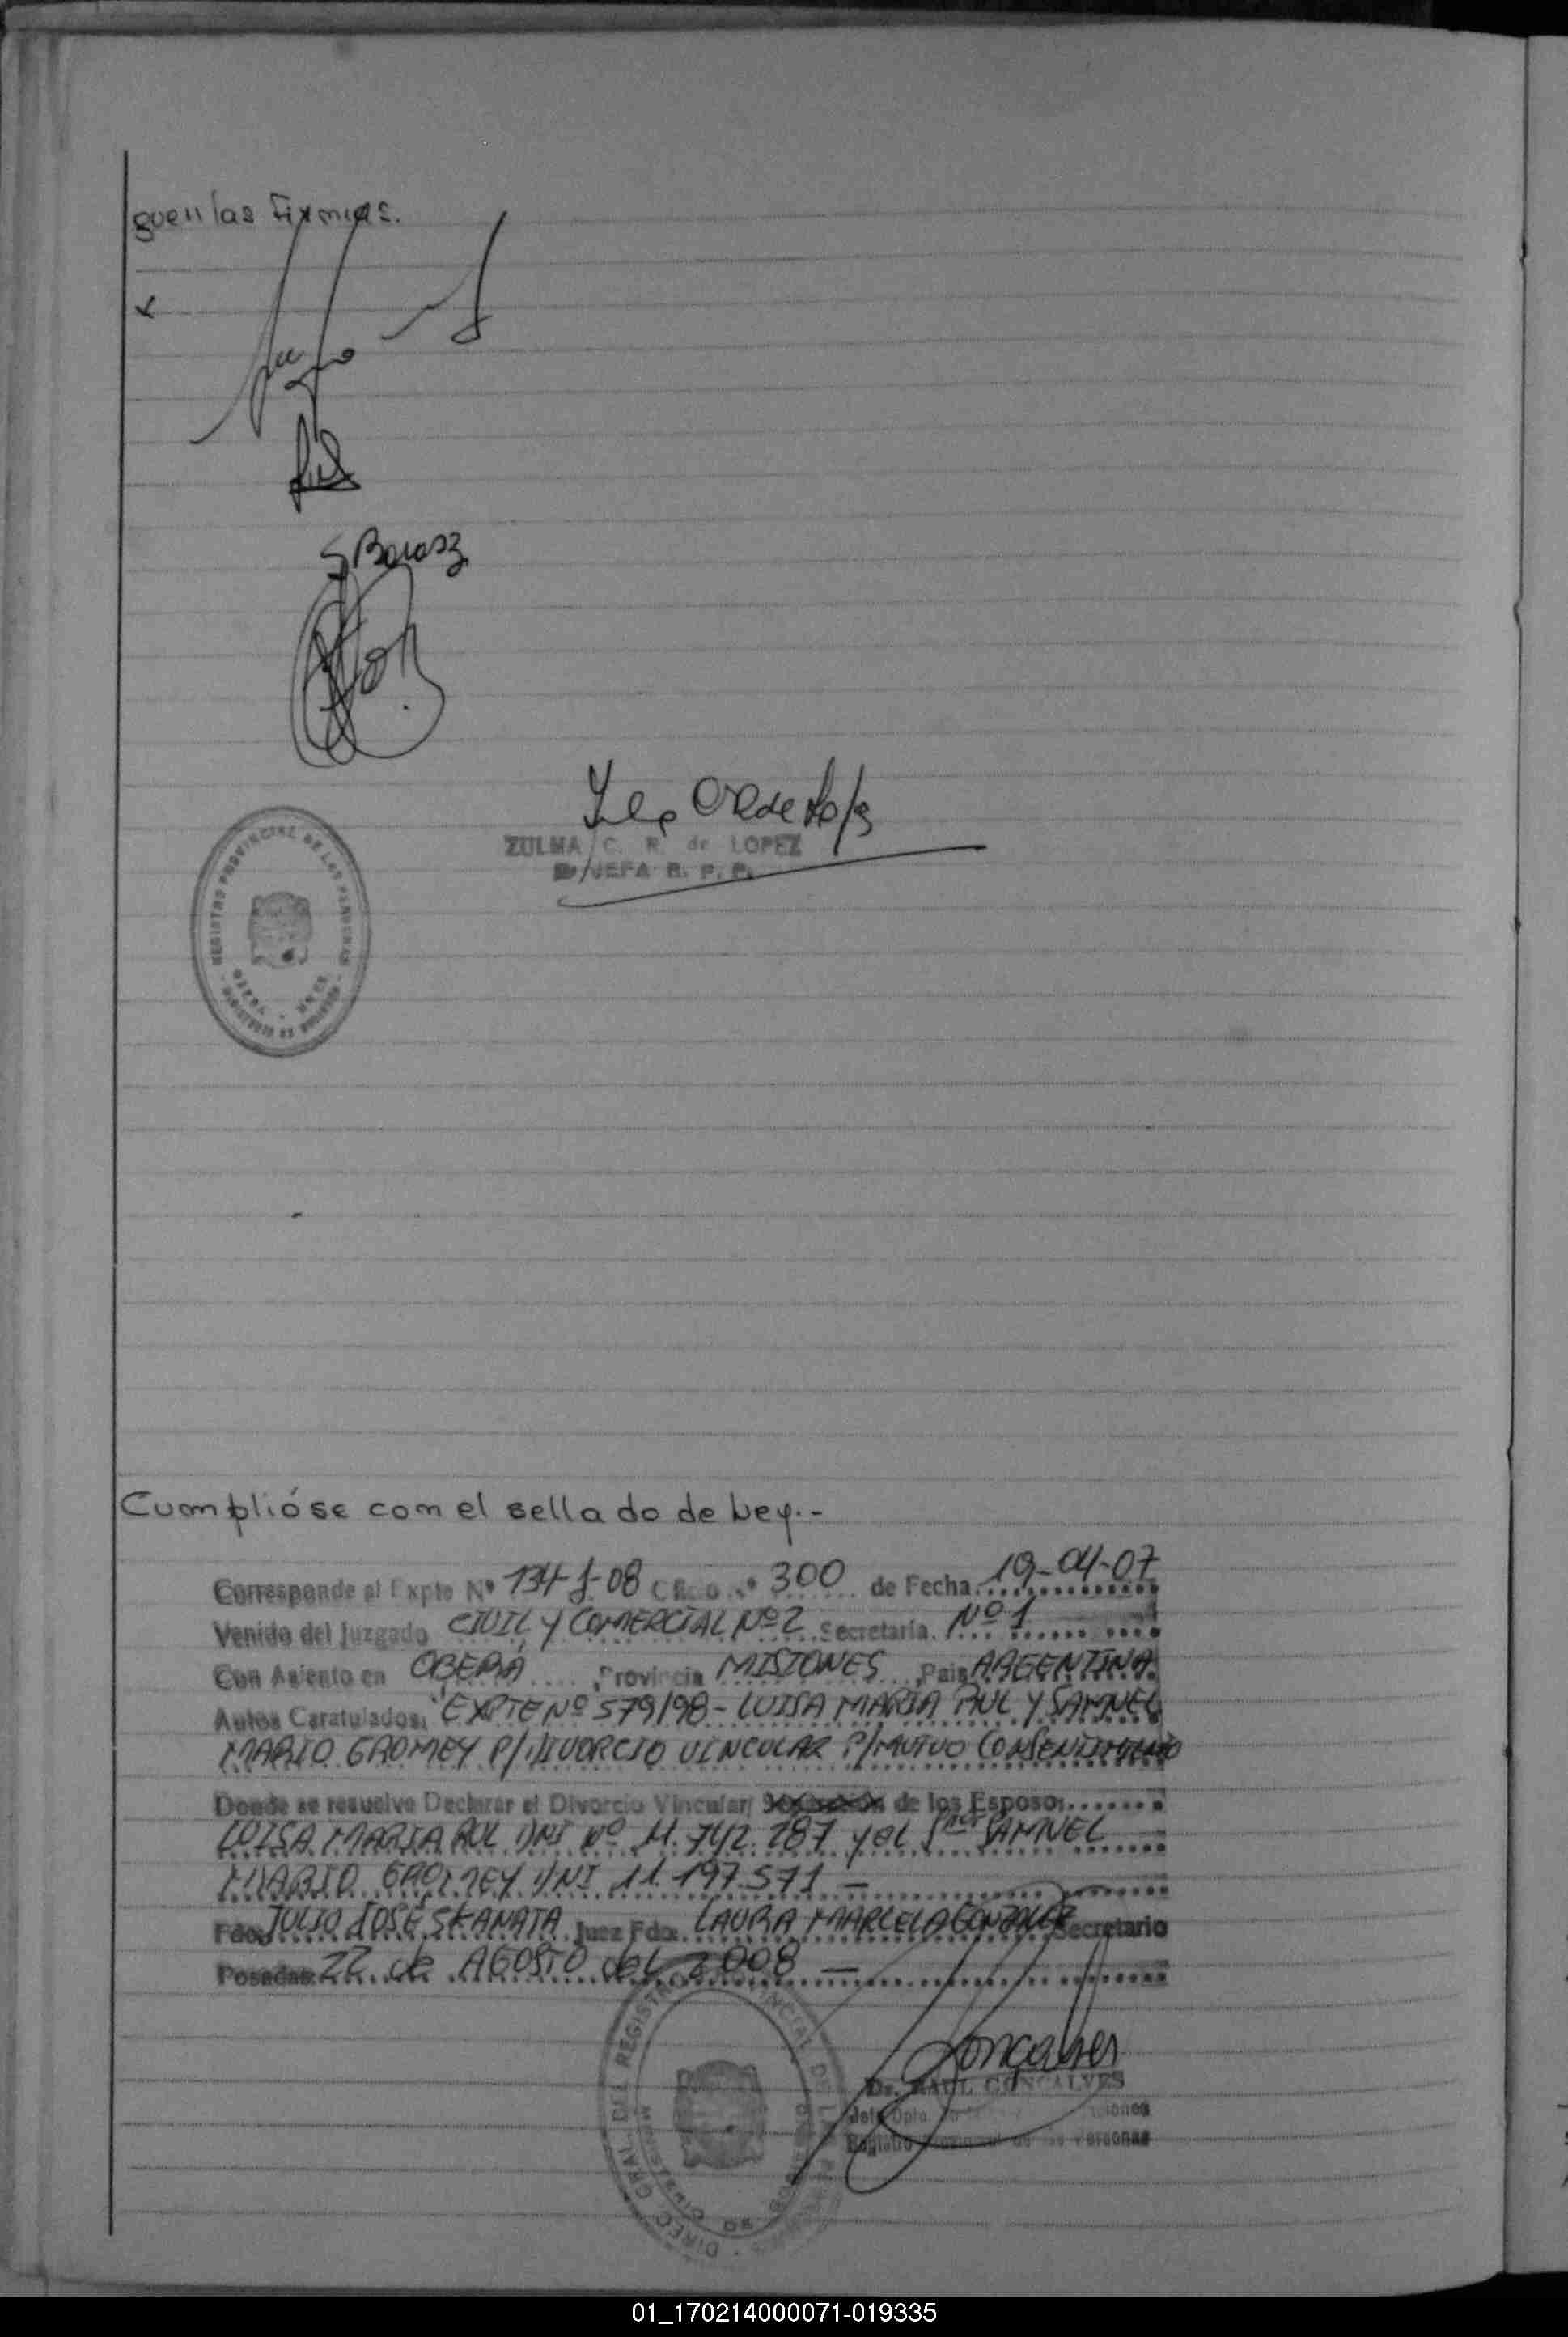 guen las firmas.
S Barasz
ZULMA C. R. de LOPEZ
JEFA R. P. P.
REGISTRO PROVINCIAL DE LAS PERSONAS
Cumplióse con el sellado de Ley.-
Corresponde al Expte Nº 134-J-08 Oficio Nº 300 de Fecha 19-04-07
Venido del Juzgado CIVIL Y COMERCIAL Nº 2 Secretaría Nº 1
Con Asiento en OBERÁ Provincia MISIONES Pais ARGENTINA
Autos Caratulados: "EXPTE Nº 579/98 - LUISA MARIA PUL Y SAMUEL
MARIO GROMEY P/DIVORCIO VINCULAR P/MUTUO CONSENTIMIENTO
Donde se resuelve Declarar el Divorcio Vincular de los Esposos
LUISA MARIA PUL DNI Nº 11.742.787 y el SAMUEL
MARIO GROMEY DNI 11.197.571 -
Fdo: JULIO JOSÉ SKANATA Juez Fdo: LAURA MARCELA GONZALEZ Secretario
Posadas 22 de AGOSTO del 2008 -
DIREC. GRAL. DEL REGISTRO PROVINCIAL DE LAS
Goncalves
Dr. RAUL GONCALVES
Jefe Dpto.
Registro Provincial de las Personas
01_170214000071-019335